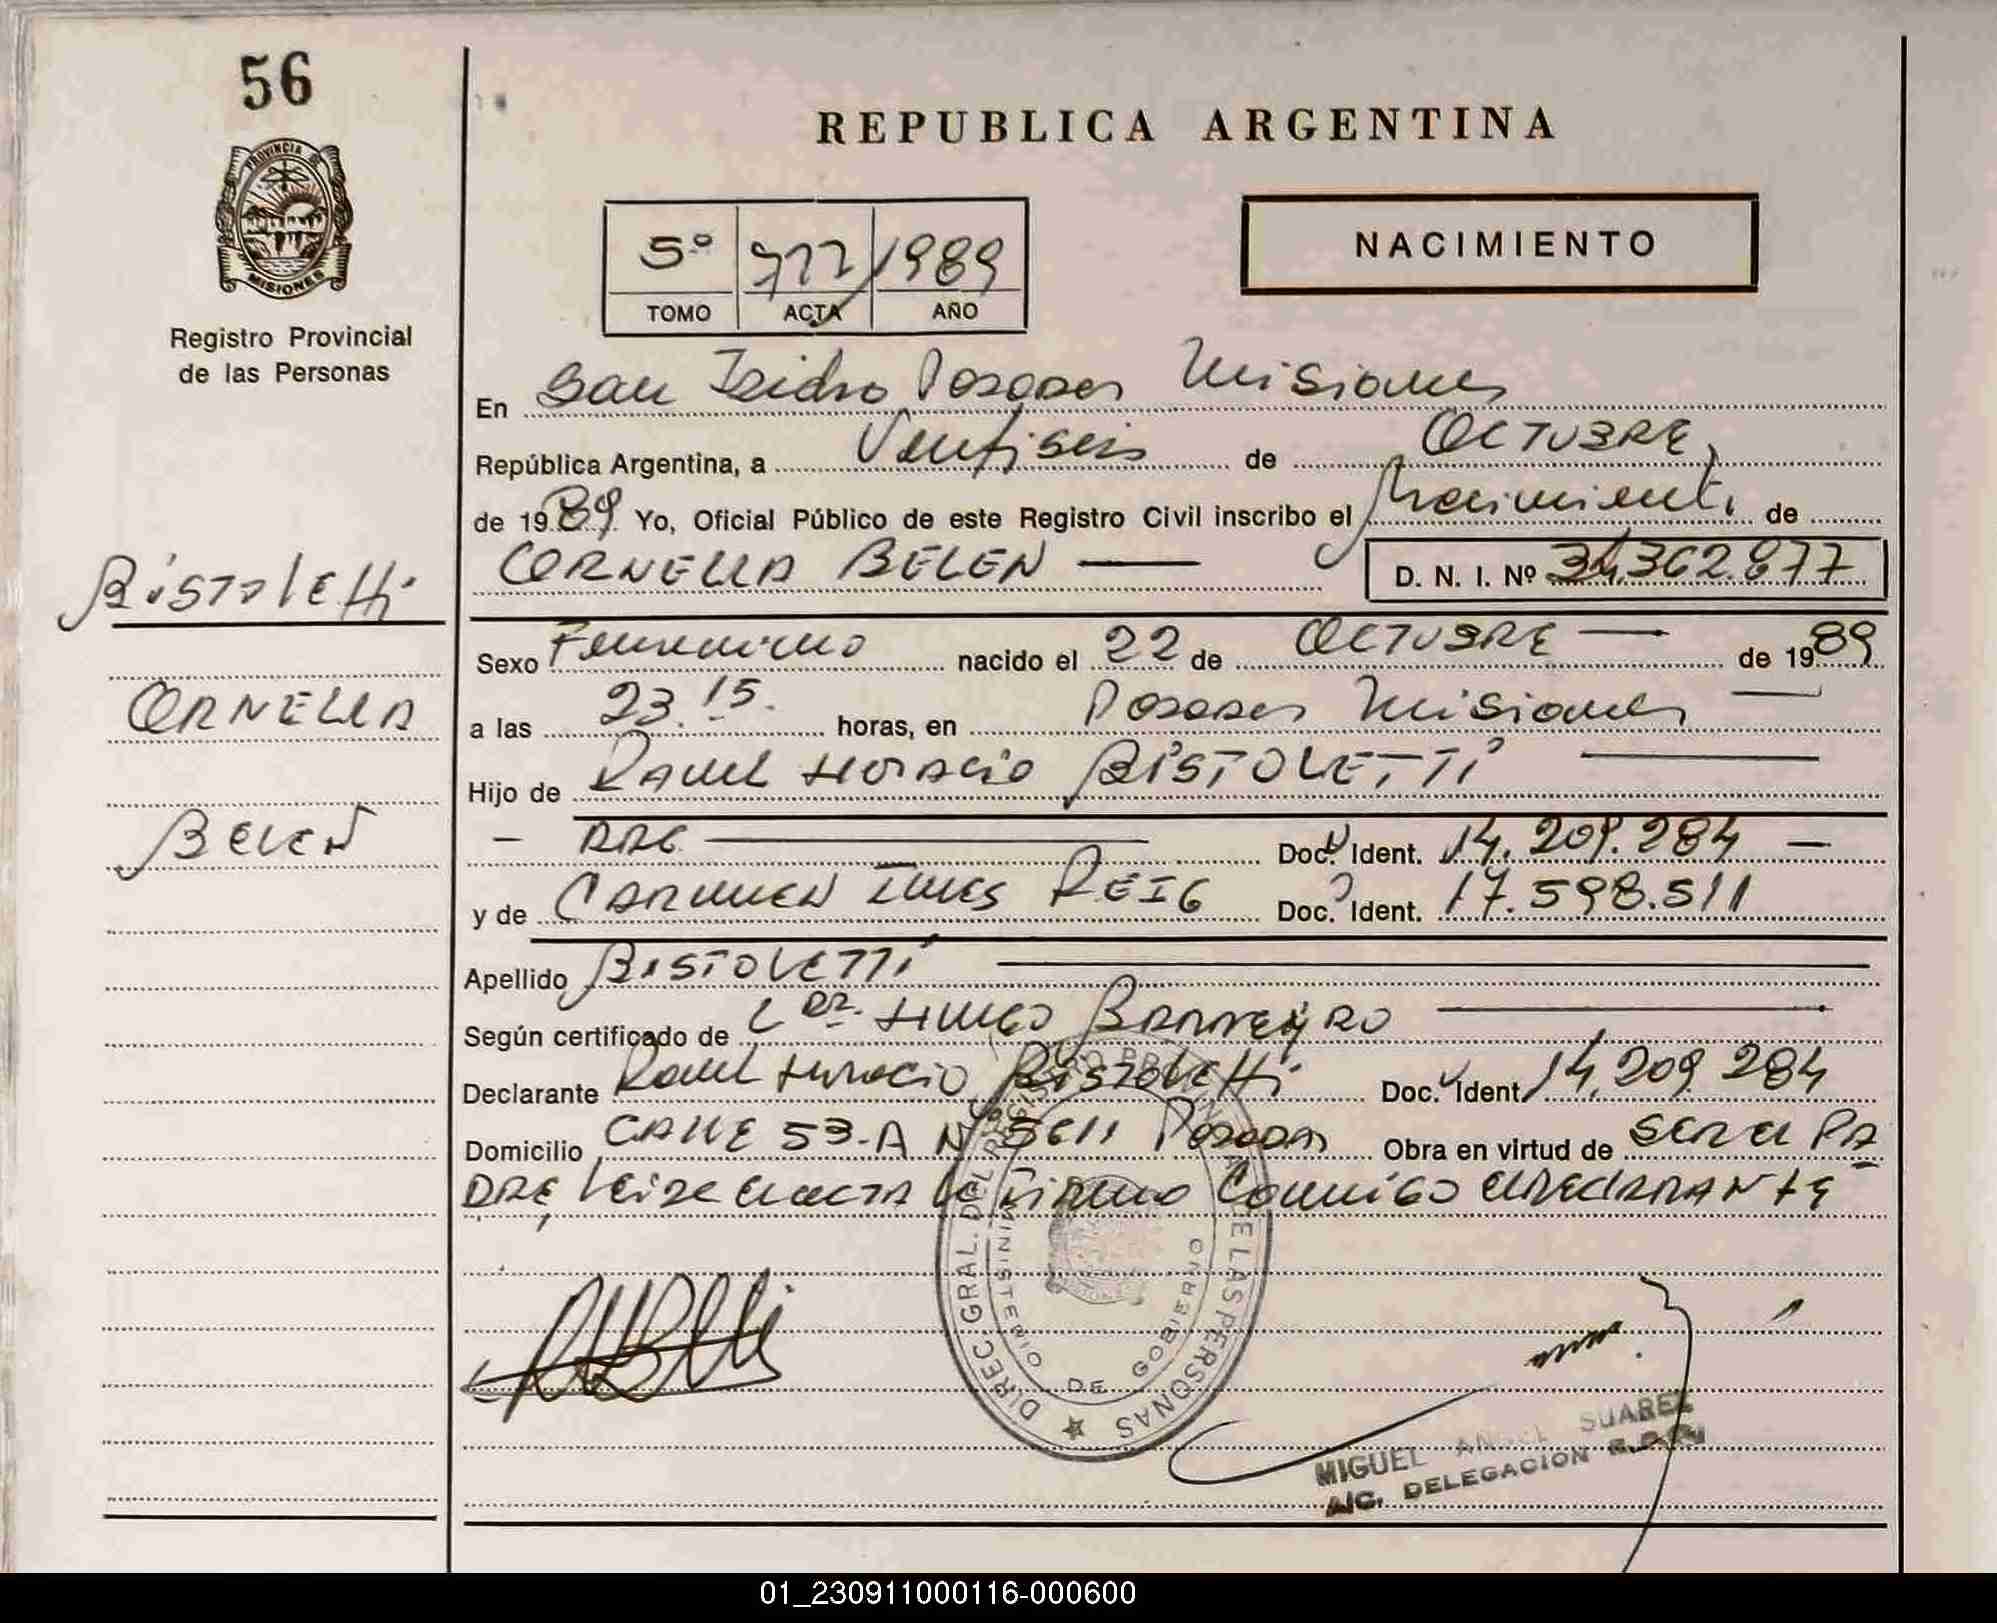 56
PROVINCIA DE
MISIONES
Registro Provincial
de las Personas
REPUBLICA ARGENTINA
5º 777 1989
TOMO ACTA AÑO
NACIMIENTO
En San Isidro Posadas Misiones
República Argentina, a Ventiseis de OCTUBRE,
de 1989 Yo, Oficial Público de este Registro Civil inscribo el Nacimiento de
ORNELLA BELEN — D. N. I. Nº 34.362.877
Bistoletti
ORNELLA
BELEN
Sexo Femenino nacido el 22 de OCTUBRE — de 1989
a las 23.15. horas, en Posadas Misiones —
Hijo de RAUL HORACIO BISTOLETTI —
— ARG — Doc. Ident. 14.209.284 —
y de CARMEN INES REIG Doc. Ident. 17.598.511
Apellido BISTOLETTI —
Según certificado de DR. HUGO BARREYRO —
Declarante Raul Horacio Bistoletti Doc. Ident. 14.209.284
Domicilio CALLE 53-A Nº 5611 Posadas Obra en virtud de SER el PA
DRE, leida el acta la firma Conmigo el DECLARANTE
DIREC. GRAL. DEL REGISTRO PROVINCIAL DE LAS PERSONAS
MINISTERIO DE GOBIERNO
MIGUEL ANGEL SUAREZ
A/C. DELEGACION R.P.P.
01_230911000116-000600